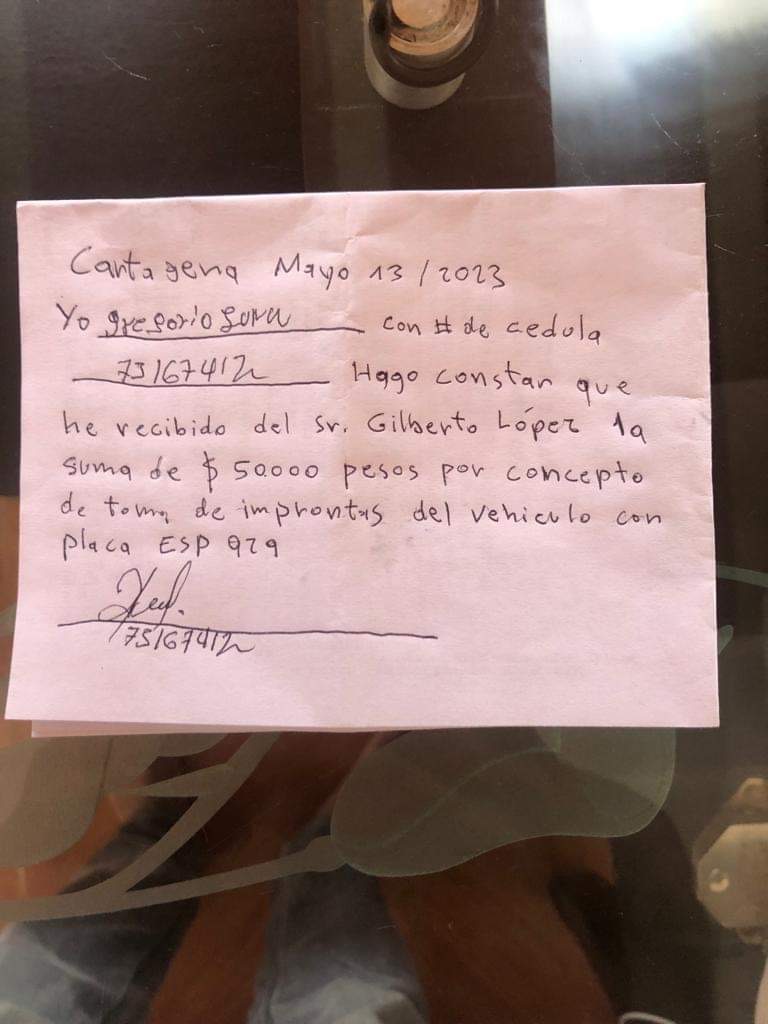 Cartagena Mayo 13/2023
Yo gregorio con # de cedula
73167412 Hago constar que
he recibido del Sr. Gilberto López la
suma de $ 50.000 pesos por concepto
de toma de improntas del vehiculo con
placa ESP 929
73167412